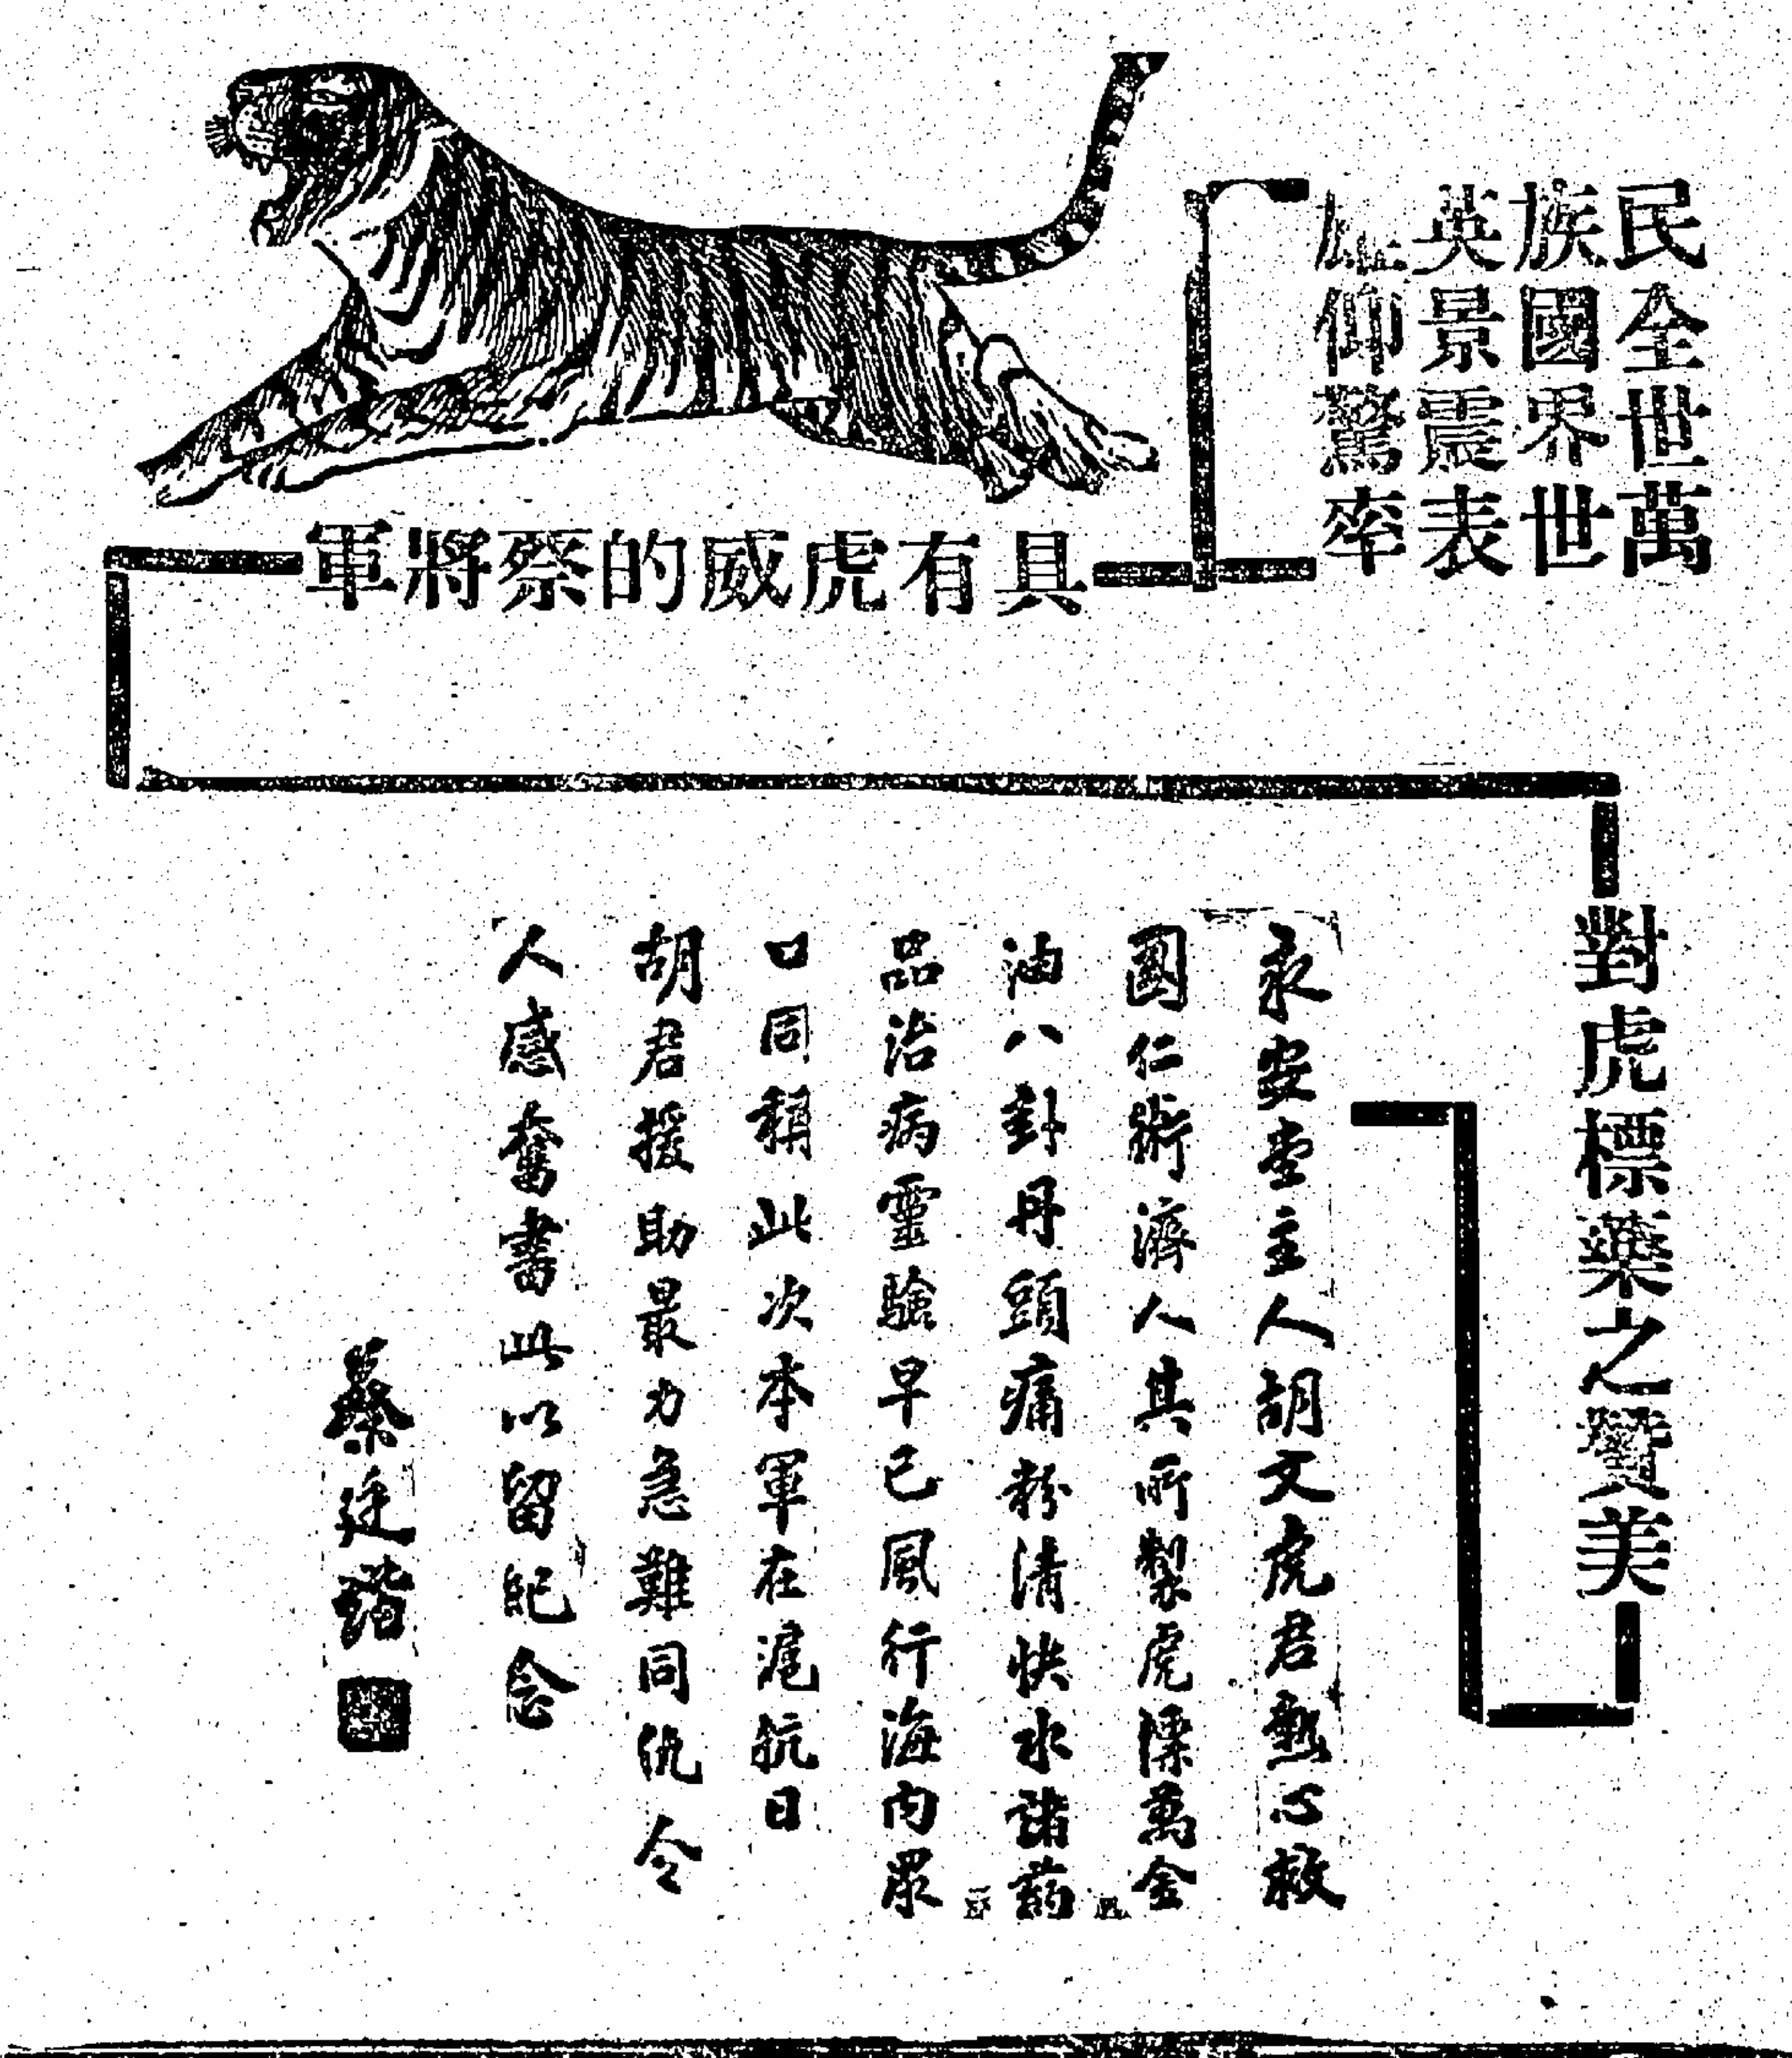 民族英雄
全國景仰
世界震驚
萬世表率
具有虎威的祭將軍
對虎標藥之贊美
永安堂主人胡文虎君熱心救
國仁術濟人其所製虎標萬金
油八卦丹頭痛粉清快水諸葯
品治病靈驗早已風行海内眾
口同稱此次本軍在滬抗日
胡君援助最力急難同仇令
人感奮書此以留紀念
蔡廷鍇